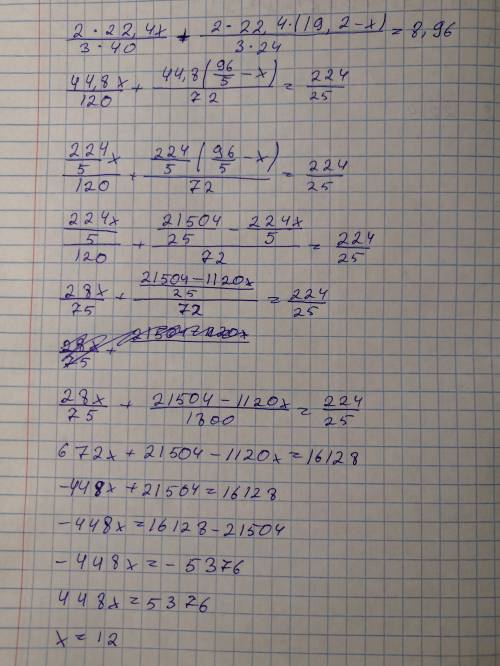 (2 · 22,4x)/(3 · 40) + (2 · 22,4 · (19,2 - x))/(3 · 24) = 8,96
(44,8x)/120 + (44,8(96/5 - x))/72 = 224/25
(224/5 x)/120 + (224/5 (96/5 - x))/72 = 224/25
(224x/5)/120 + (21504/25 - 224x/5)/72 = 224/25
28x/75 + ((21504 - 1120x)/25)/72 = 224/25
28x/75 + (21504 - 1120x)/1800 = 224/25
672x + 21504 - 1120x = 16128
-448x + 21504 = 16128
-448x = 16128 - 21504
-448x = -5376
448x = 5376
x = 12